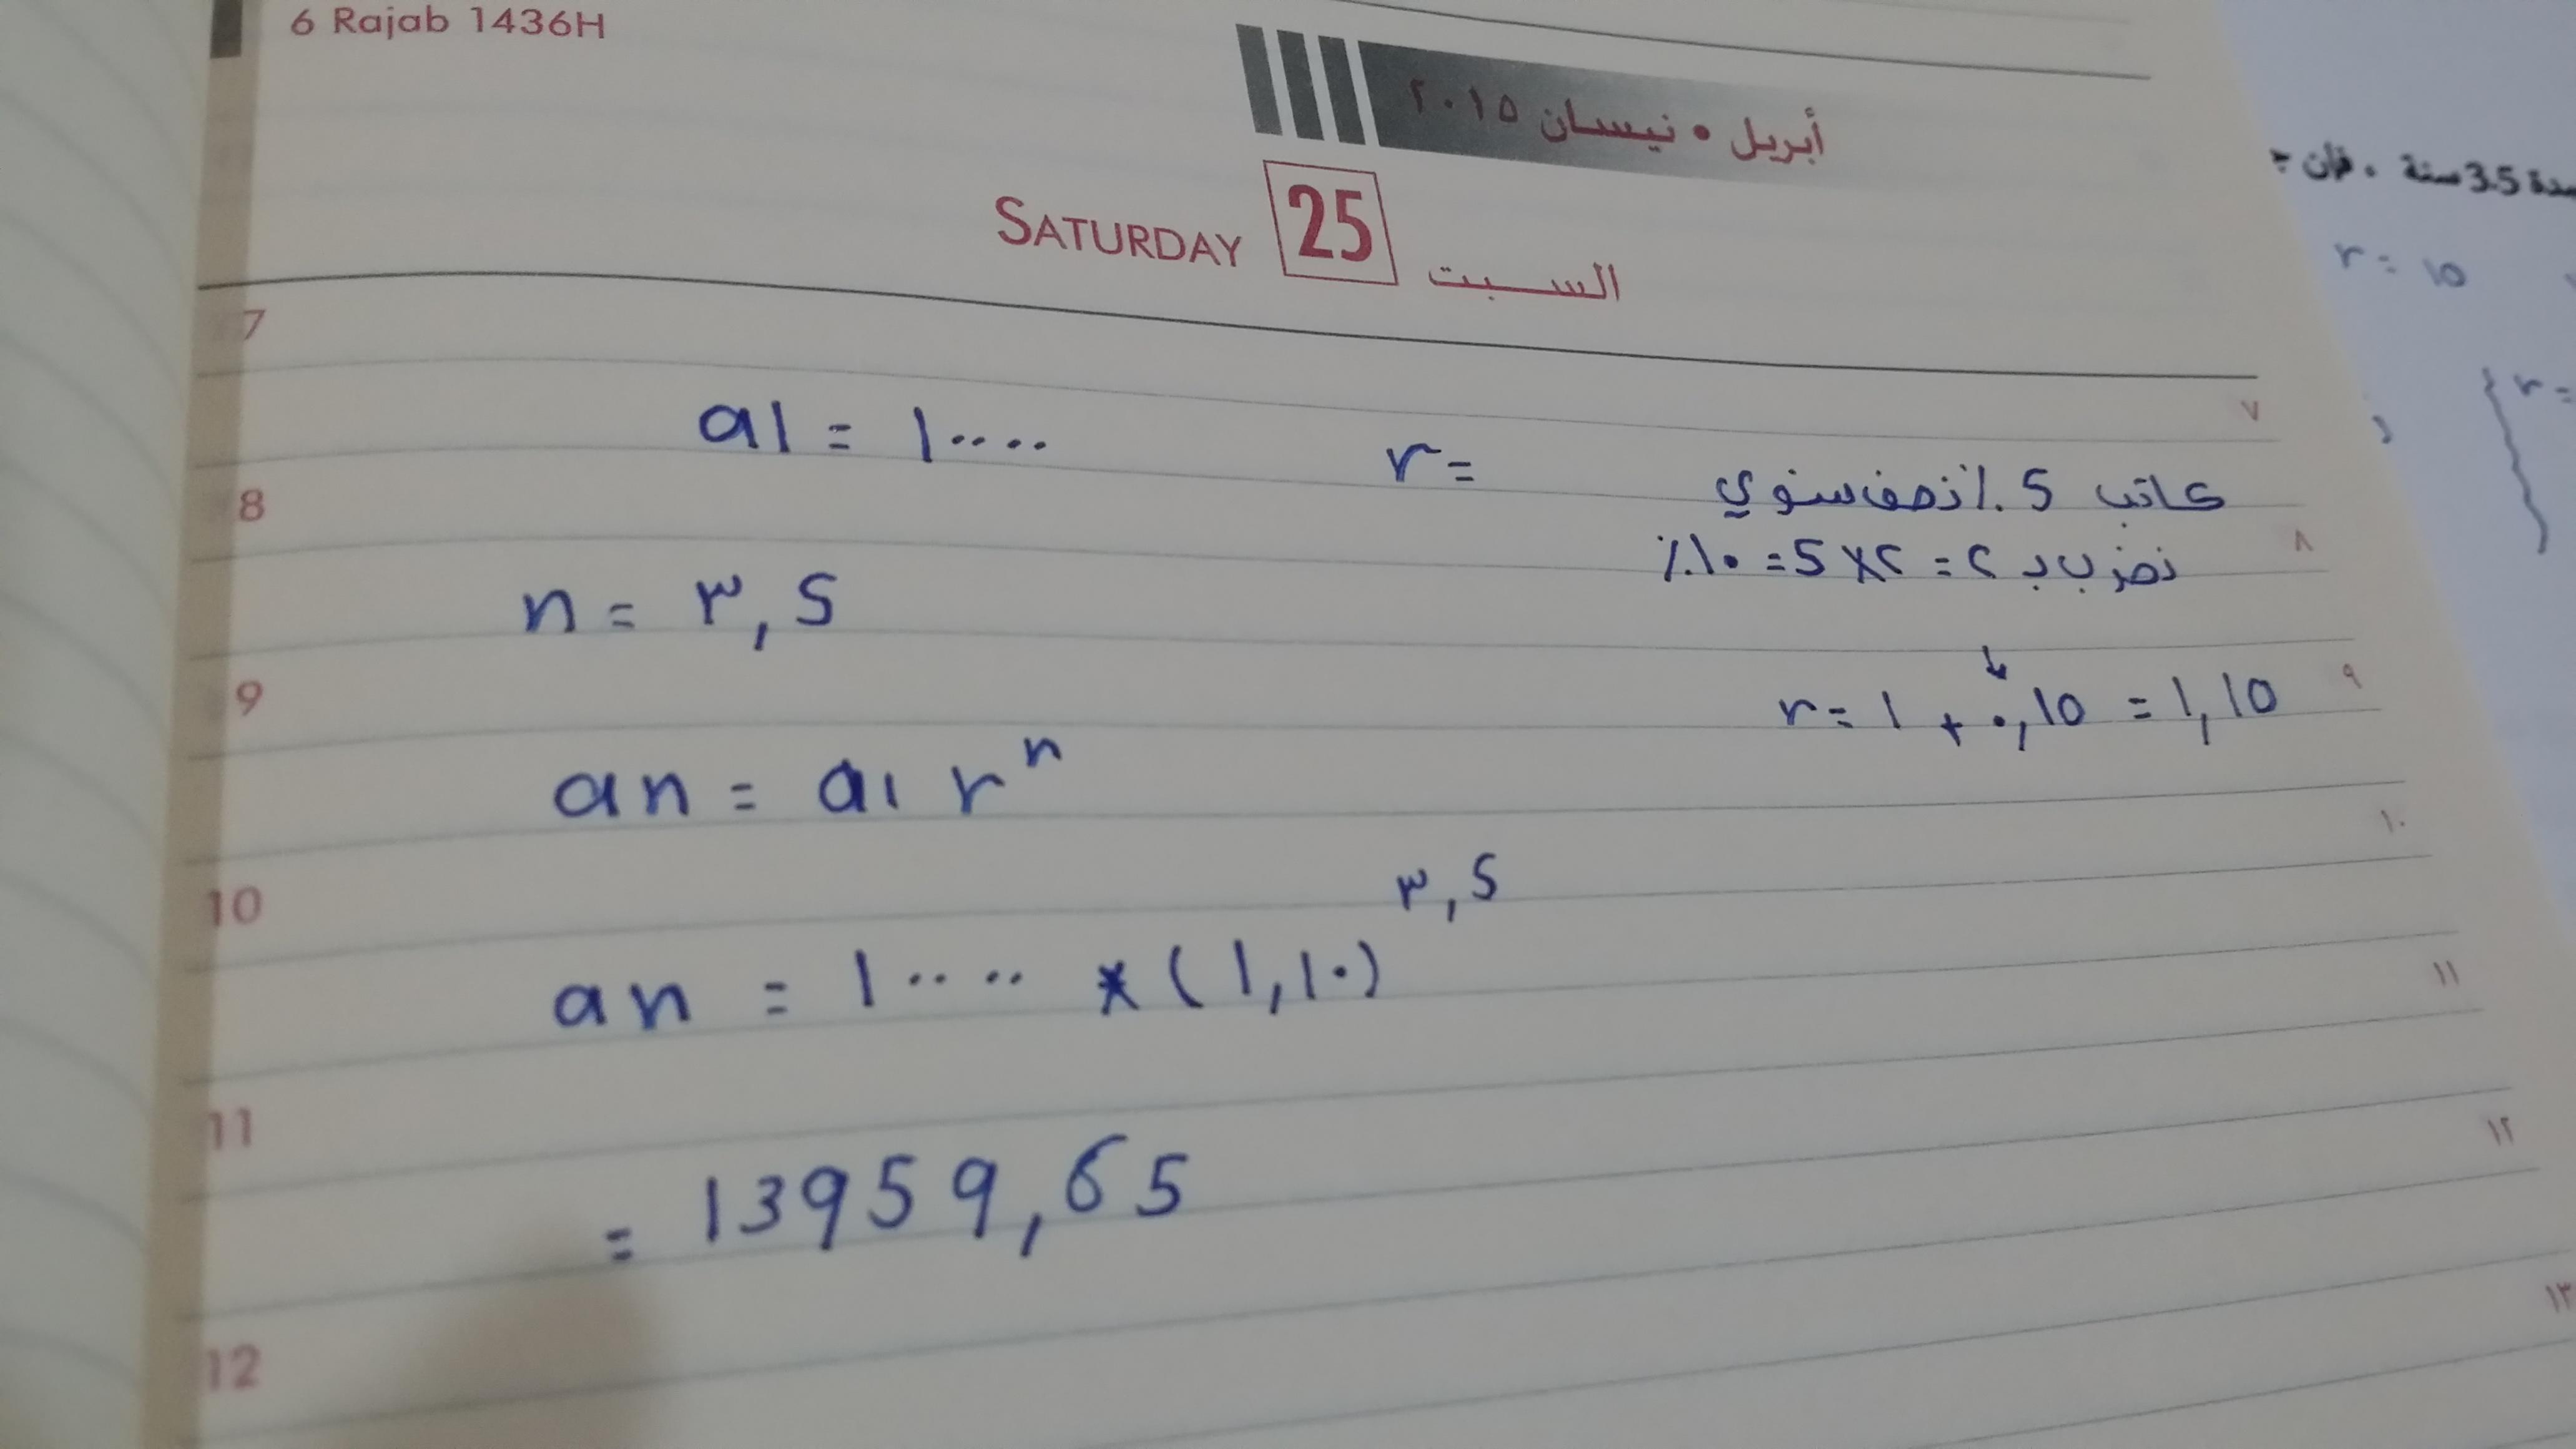 6 Rajab 1436H
أبريل • نيسان ٢٠١٥
SATURDAY 25 السبت
7 ٧
a1 = ١٠٠٠٠ r =
كاتب 5 ٪ نصف سنوي
8 ٨
نضرب بـ ٢ = ٢×5 = ١٠٪
n = ٣,5
r = 1 + ٠,10 = 1,10
9 ٩
an = a1 r^n
10 ١٠
an = ١٠٠٠٠ * (١,١٠)^٣,5
11 ١١
= 13959,65
12 ١٢
١٣
مدة 3.5 سنة . فإن
r = 10
r =